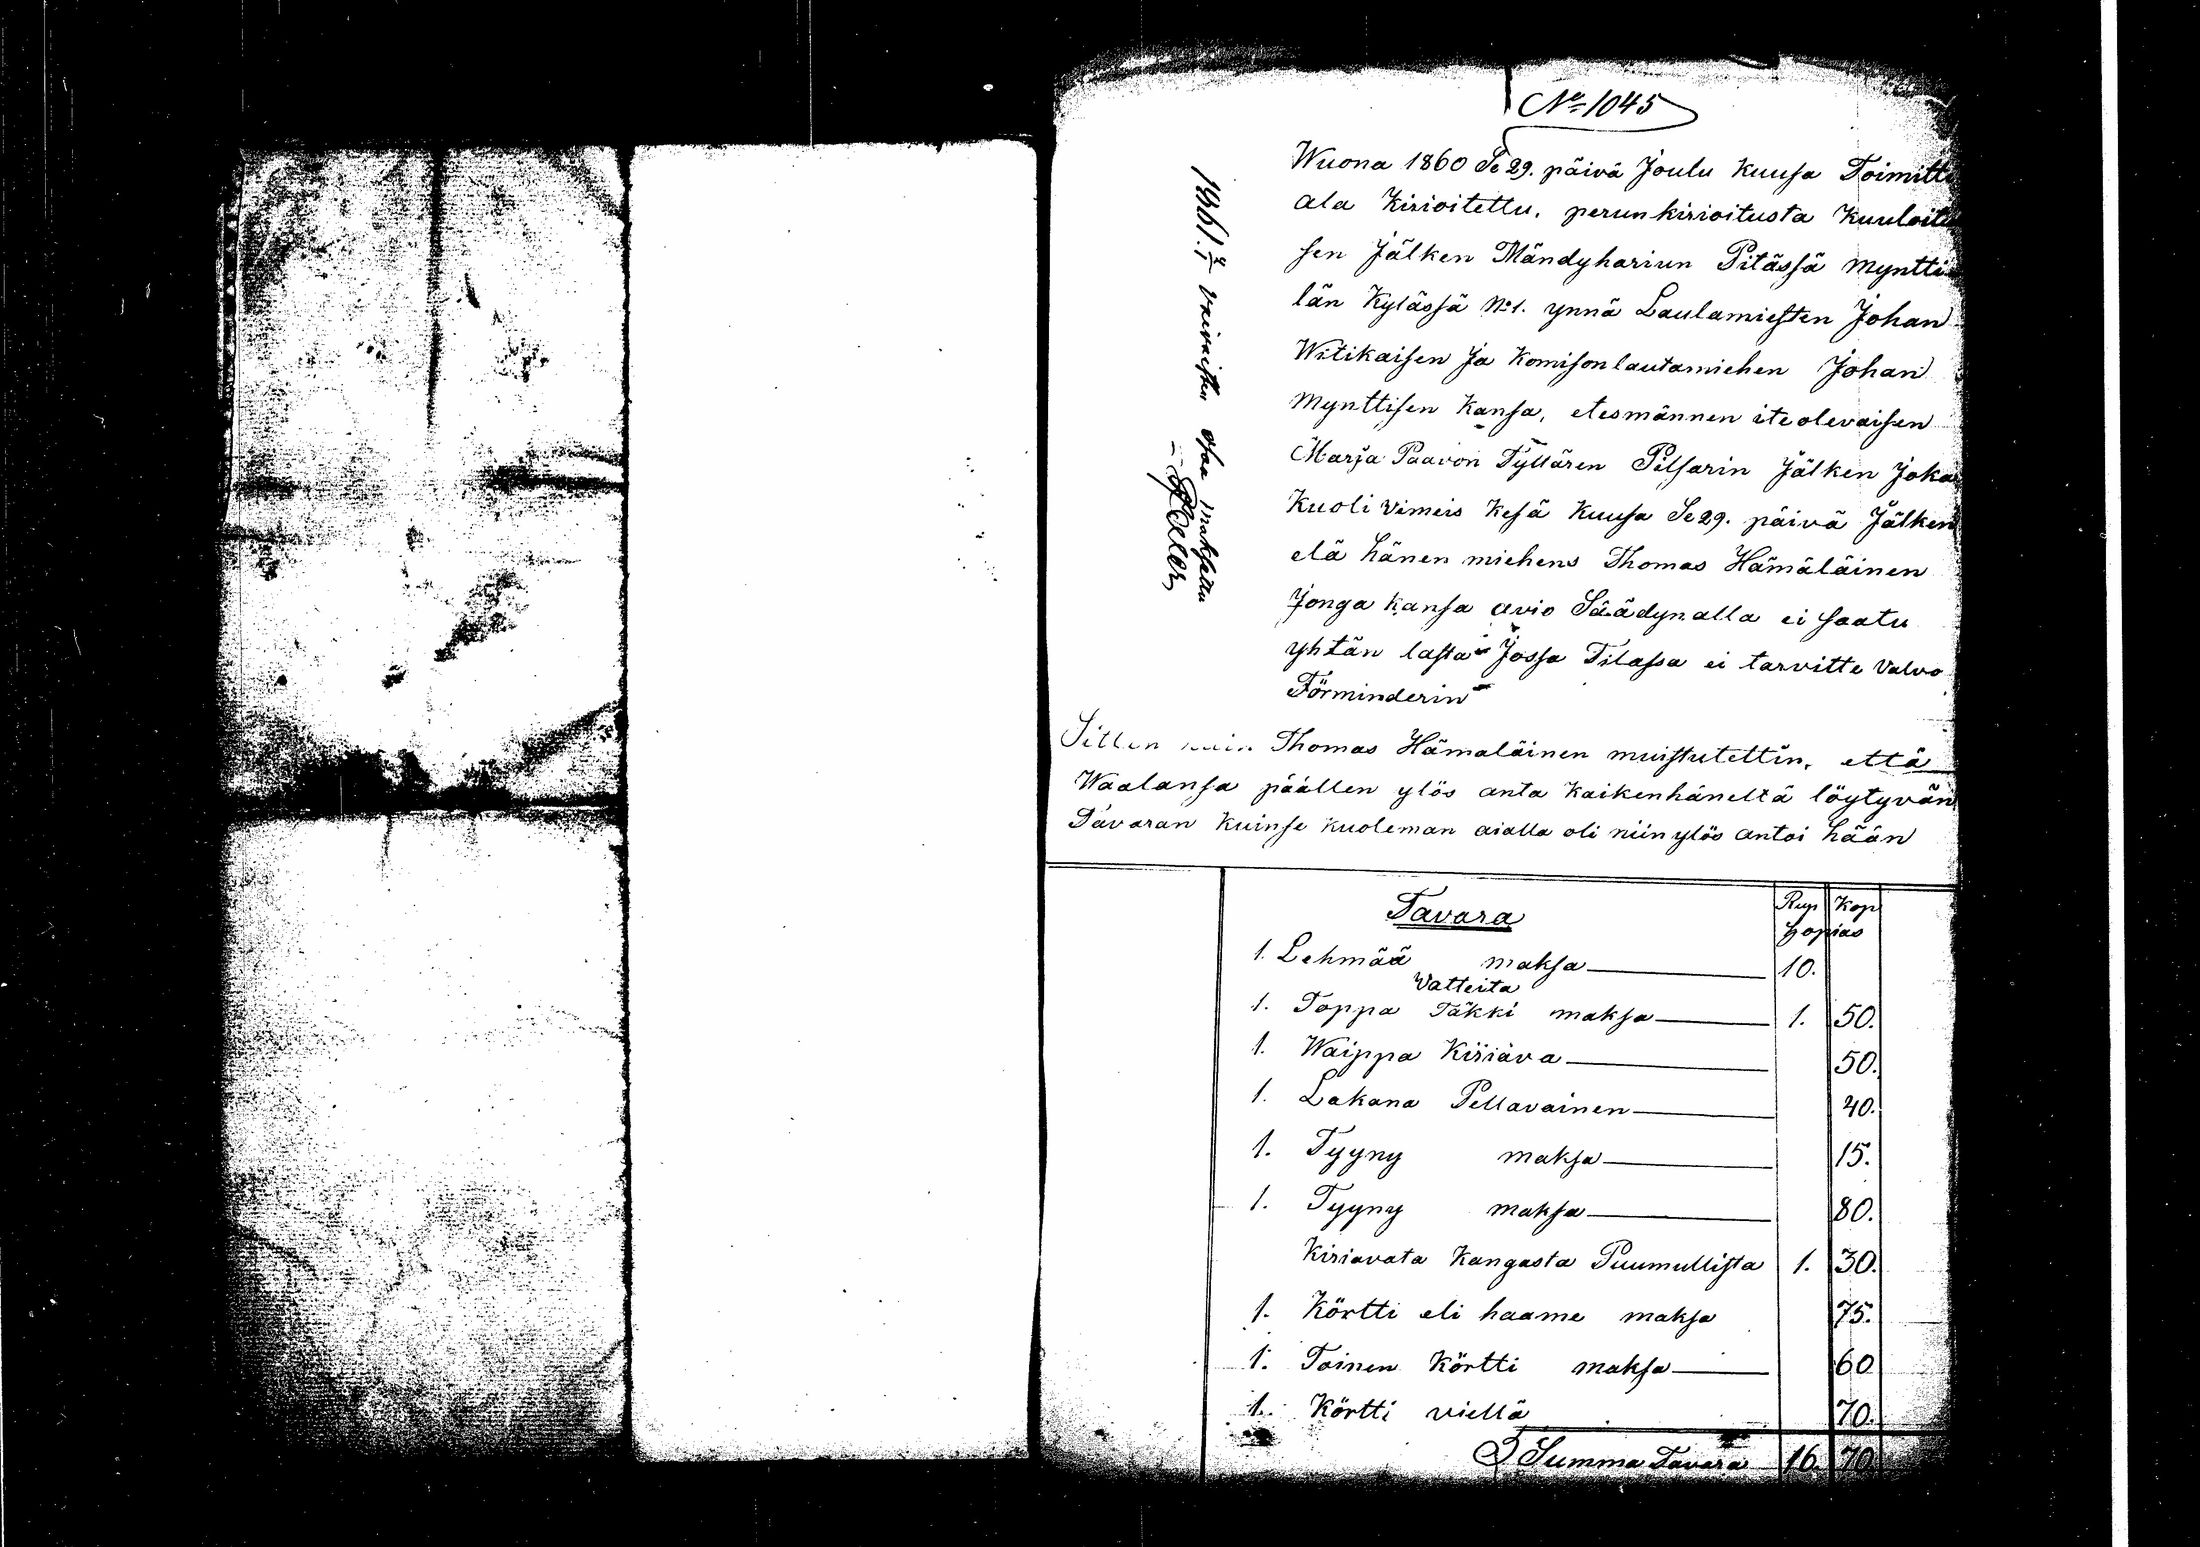 No 1045
Wuona 1860 Se 29. päivä Joulu Kuusa Toimitti
ala Kirioitettu, perunkirioitusta Kuuloitu
sen Jälken Mändyhariun Pitässä Myntti
län Kylässä No 1. ynnä Laulamiesten Johan
Witikaisen Ja Komison lautamiehen Johan
Mynttisen Kansa, etesmännen ite olevaisen
Marja Paavon Tyttären Pilsarin Jälken Joka
Kuoli Vimeis Kesä Kuusa Se 29. päivä Jälken
elä hänen miehens Thomas Hämäläinen
Jonga Kansa avio Säädyn alla ei saatu
yhtän lasta Jossa Tilassa ei tarvitte Valvo
Förminderin
Sitten kuin Thomas Hämäläinen muistutettin, että
Waalansa päällen ylös anta Kaiken häneltä löytyvän
Tavaran Kuin se Kuoleman aialla oli niin ylös antoi hään
1861. vaivaisten osa maksettu
Tavara Rup Kop
hopias
1. Lehmää maksa 10.
Vatteita
1. Toppa Täkki maksa 1. 50.
1. Waippa Kiriäva 50.
1. Lakana Pellavainen 40.
1. Tyyny maksa 15.
1. Tyyny maksa 80.
Kiriavata Kangasta Puumullista 1. 30.
1. Körtti eli haame maksa 75.
1. Toinen Körtti maksa 60
1. Körtti viellä 70.
Summa Tavara 16. 70